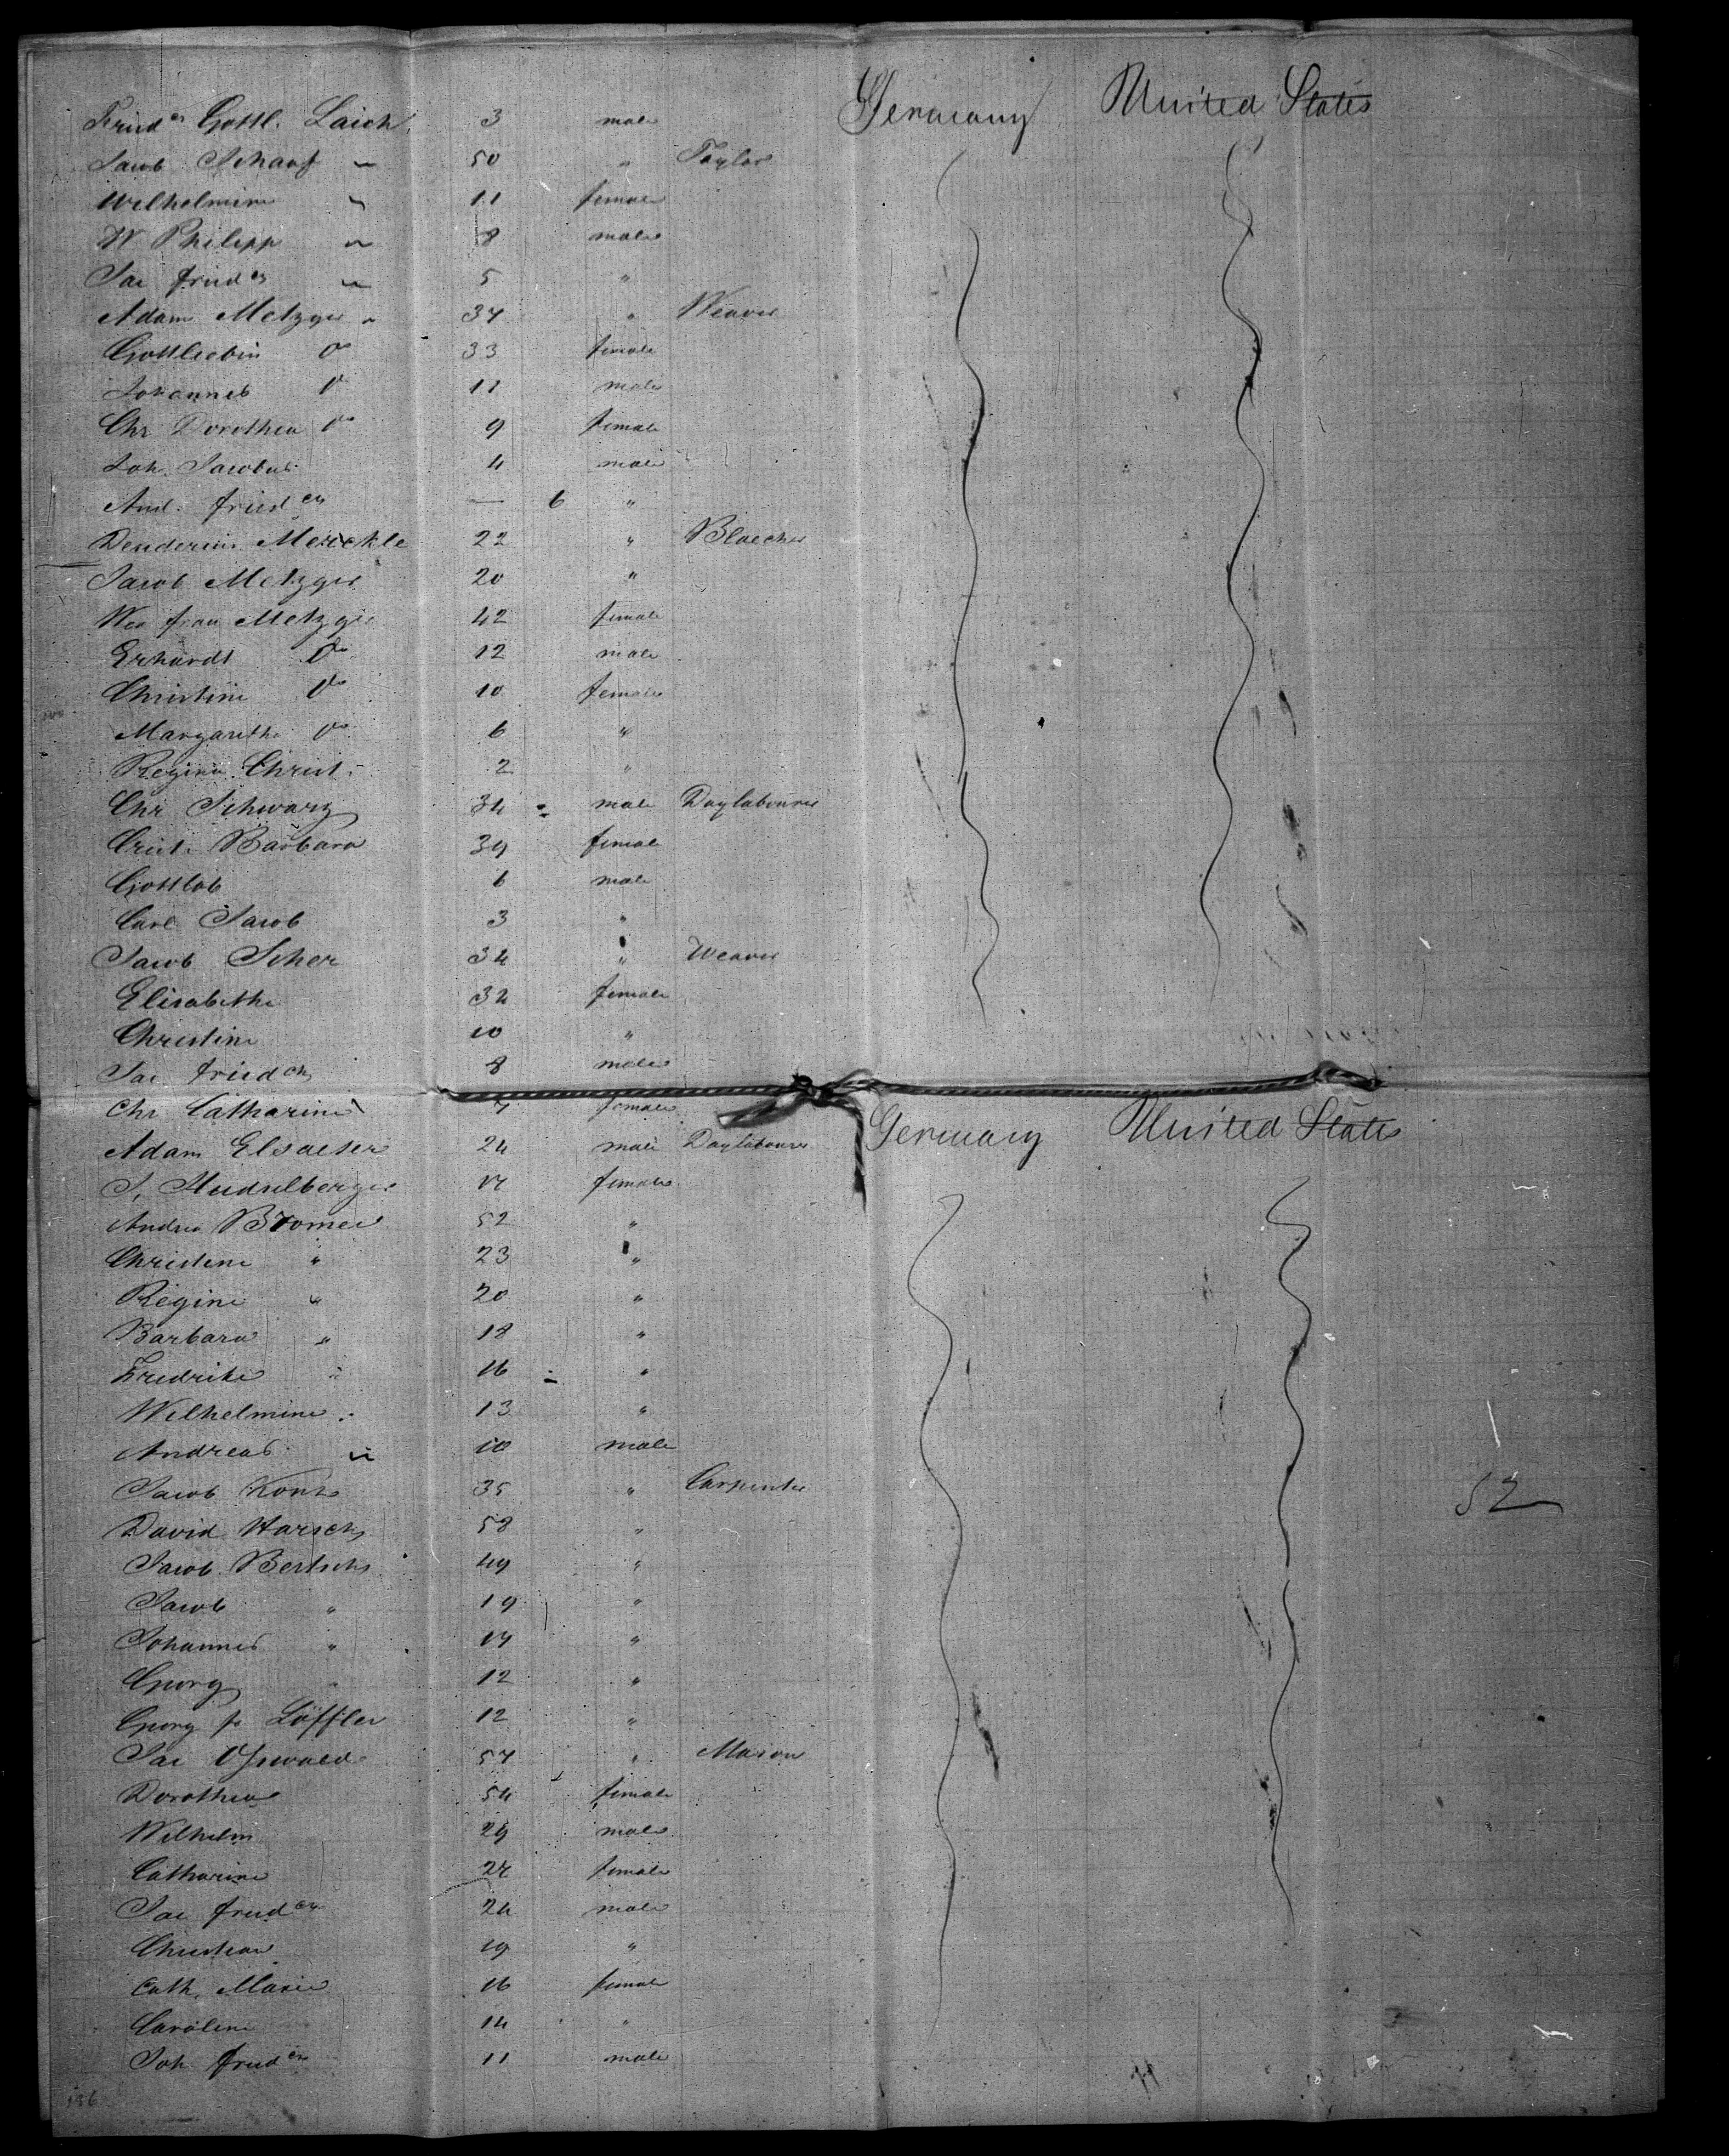 Fried ch Gottl. Laich 3 male Germany United States
Jacob Schaaf " 50 " Taylor
Wilhelmine " 11 female
W Philipp " 8 male
Jac Fried ch " 5 "
Adam Metzger " 34 " Weaver
Gottliebin do 33 female
Johannes do 11 male
Chr Dorothea do 9 female
Joh. Jacobus 4 male
And. Fried ch — 6 "
Merckle 22 "
Jacob Metzger 20 "
Frau Metzger 42 female
Erhardt do 12 male
Christine do 10 female
Margarethe do 6 "
Regina Christ. 2 "
Chr Schwarz 34 male Daylabourer
Crist. Barbara 39 female
Gottlob 6 male
Carl Jacob 3 "
Jacob Scher 34 " Weaver
Elisabethe 32 female
Christine 10 "
Jac Fried ch 8 male
Chr Catharine female
Adam Elsaeser 24 male Daylabourer Germany United States
S. female
Andrea Bromer 52 "
Christine " 23 "
Regine " 20 "
Barbara " 18 "
Fredrike " 16 "
Wilhelmine " 13 "
Andreas " 10 male
Jacob Kontz 35 " Carpenter
David Harsch 58 "
Jacob Bertsch 49 "
Jacob " 19 "
Johannes " 14 "
Georg " 12 "
Georg Fr Löffler 12 "
Jac Oswald 57 " Mason
Dorothea 54 female
Wilhelm 29 male
Catharine 27 female
Jac Fried ch 24 male
Christian 19 "
Cath. Marie 16 female
Caroline 14 "
Joh Fried ch 11 male
52
136